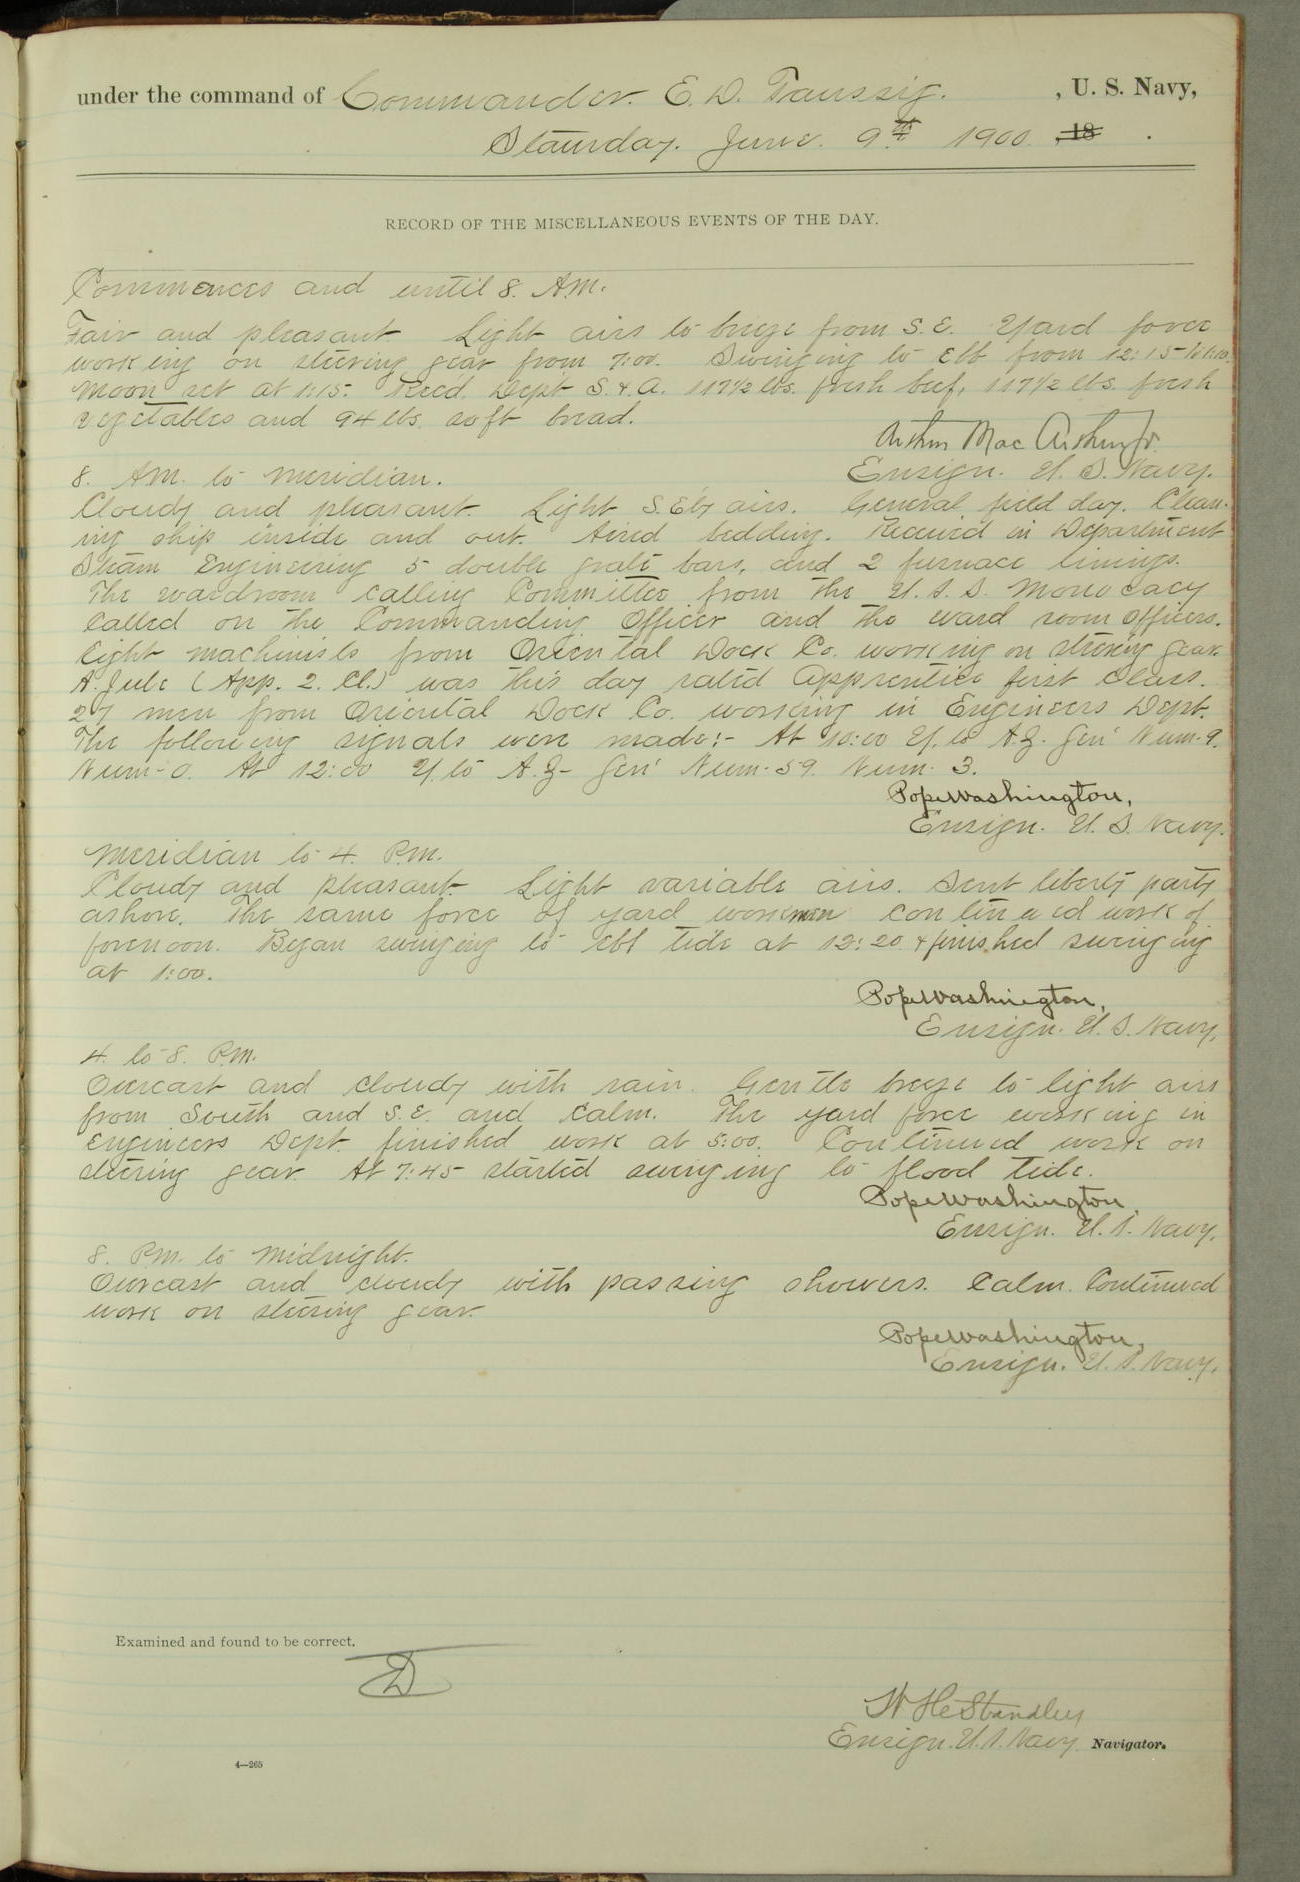 under the command of Commander. E. D. Taussig. , U. S. Navy,
Staurday. June. 9th 1900. , 18 .
RECORD OF THE MISCELLANEOUS EVENTS OF THE DAY.
Commences and until 8. A.M.
Fair and pleasant. Light airs to breeze from S.E. Yard force
working on steering gear from 7:00. Swinging to ebb from 12:15 to 1:10.
Moon set at 1:15. Recd. Dept S. & A. 117 1/2 lbs. fresh beef, 117 1/2 lbs. fresh
vegetables and 94 lbs. soft bread.
Arthur MacArthur Jr.
Ensign. U. S. Navy.
8. AM. to meridian.
Cloudy and pleasant. Light S.E'ly airs. General field day. Clean-
ing ship inside and out. Aired bedding. Received in Department
Steam Engineering 5 double grate bars, and 2 furnace linings.
The wardroom calling Committee from the U. S. S. Monocacy
called on the Commanding Officer and the ward room officers.
Eight machinists from Oriental Dock Co. working on steering gear.
A. Jule (App. 2. Cl.) was this day rated Apprentice first Class.
27 men from Oriental Dock Co. working in Engineers Dept.
The following signals were made:- At 10:00 Y. to A.Z. Gen' Num-9.
Num-0. At 12:00 Y. to A.Z- Gen' Num-59. Num. 3.
Pope Washington,
Ensign. U. S. Navy.
Meridian to 4. P.M.
Cloudy and pleasant. Light variable airs. Sent liberty party
ashore. The same force of yard workmen continued work of
forenoon. Began swinging to ebb tide at 12:20 & finished swinging
at 1:00.
Pope Washington,
Ensign. U. S. Navy.
4. to 8. P.M.
Overcast and cloudy with rain. Gentle breeze to light airs
from South and S.E. and calm. The yard force working in
Engineers Dept. finished work at 5:00. Continued work on
steering gear. At 7:45 started swinging to flood tide.
Pope Washington,
Ensign. U. S. Navy.
8. P.M. to Midnight.
Overcast and cloudy with passing showers. Calm. Continued
work on steering gear.
Pope Washington,
Ensign. U. S. Navy.
Examined and found to be correct.
W H Standley
Ensign. U. S. Navy Navigator.
4—265